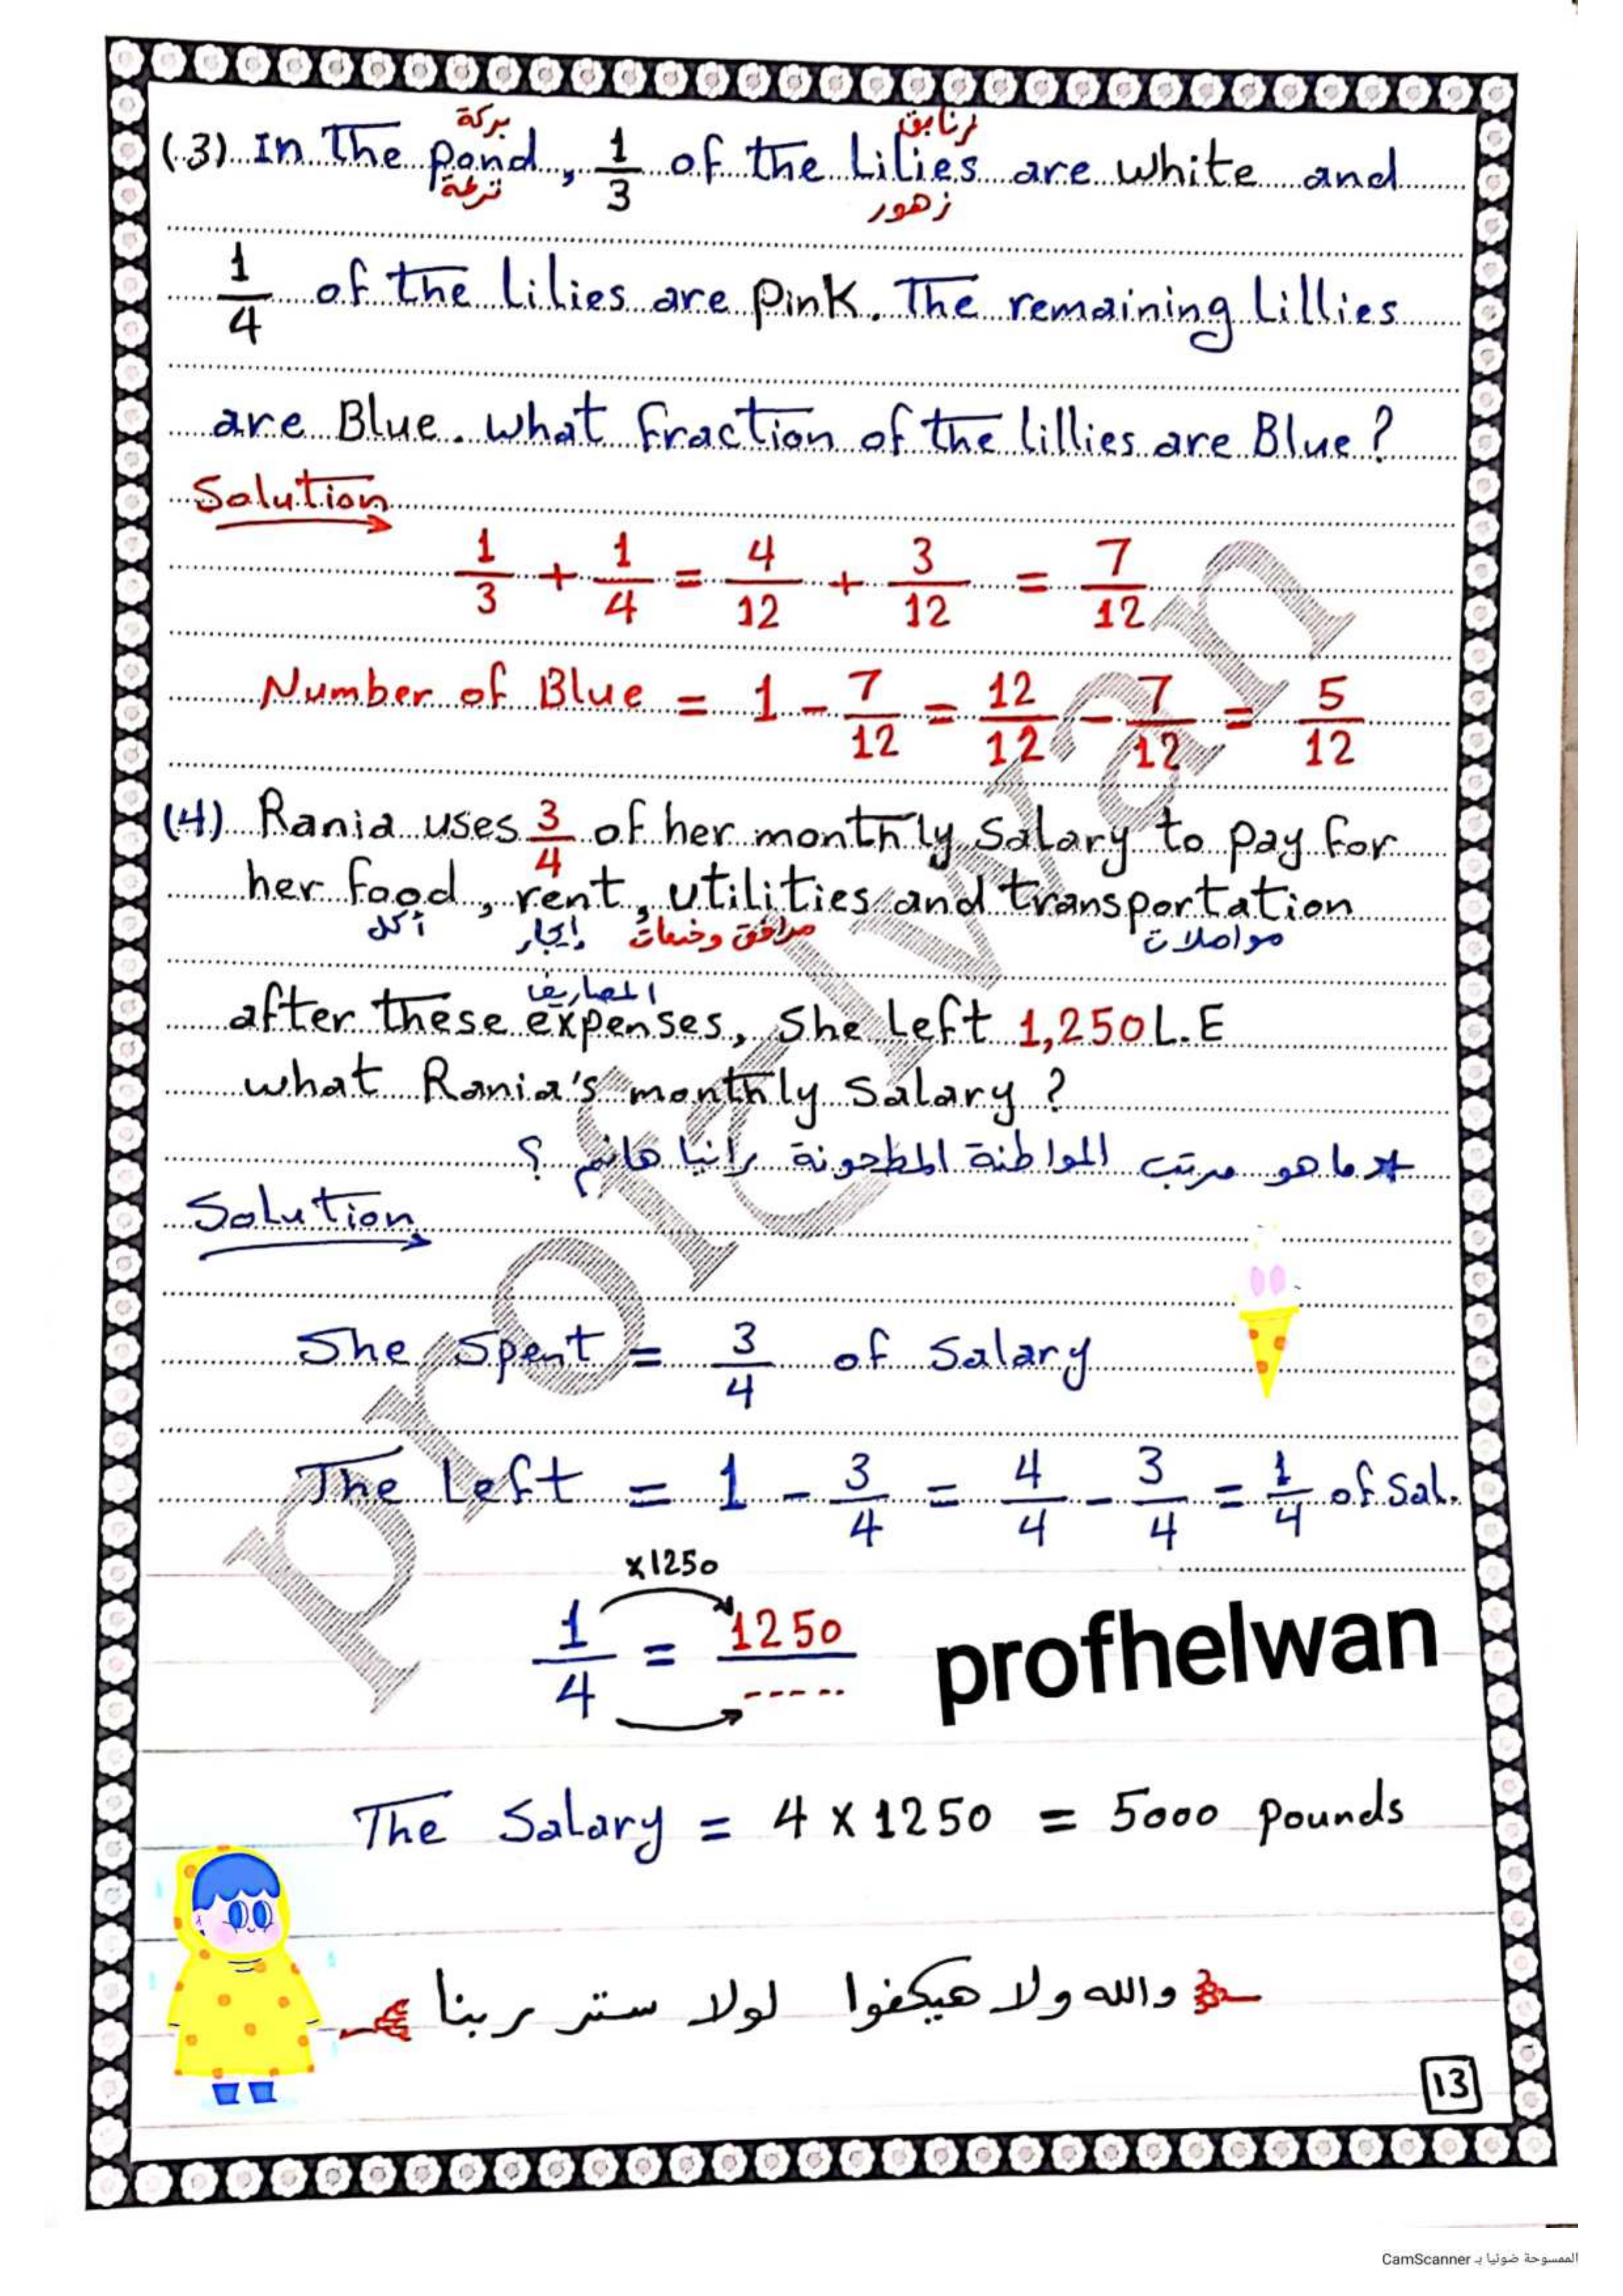 بركة زنابق
(3) In The pond, 1/3 of the Lilies are white and
ترعة زهور
1/4 of the Lilies are Pink. The remaining Lillies
are Blue. what fraction of the lillies are Blue?
Solution
1/3 + 1/4 = 4/12 + 3/12 = 7/12
Number of Blue = 1 - 7/12 = 12/12 - 7/12 = 5/12
(4) Rania uses 3/4 of her monthly Salary to pay for
her food, rent, utilities and transportation
أكل إيجار مرافق وخدمات مواصلات
المصاريف
after these expenses, She Left 1,250 L.E
what Rania's monthly Salary ?
* ما هو مرتب المواطنة المطحونة رانيا هانم ؟
Solution
She Spent = 3/4 of Salary
The Left = 1 - 3/4 = 4/4 - 3/4 = 1/4 of Sal.
x1250
1/4 = 1250/-----
profhelwan
The Salary = 4 x 1250 = 5000 Pounds
والله ولا هيكفوا لولا ستر ربنا
13
profelwan
الممسوحة ضوئيا بـ CamScanner